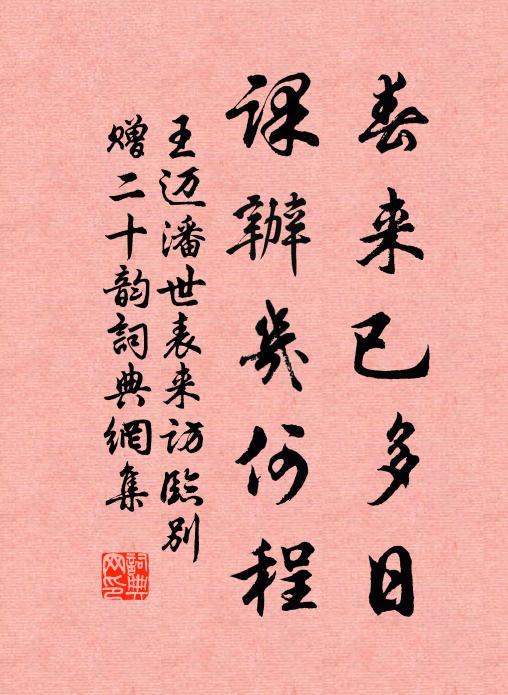 春来已多日
課辦幾何程
王迈潘世表来访臨别
赠二十韵詞典網集
詞典
网印